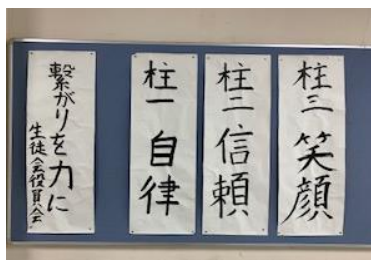 繋がりを力に
生徒会役員会
柱一 自律
柱二 信頼
柱三 笑顔